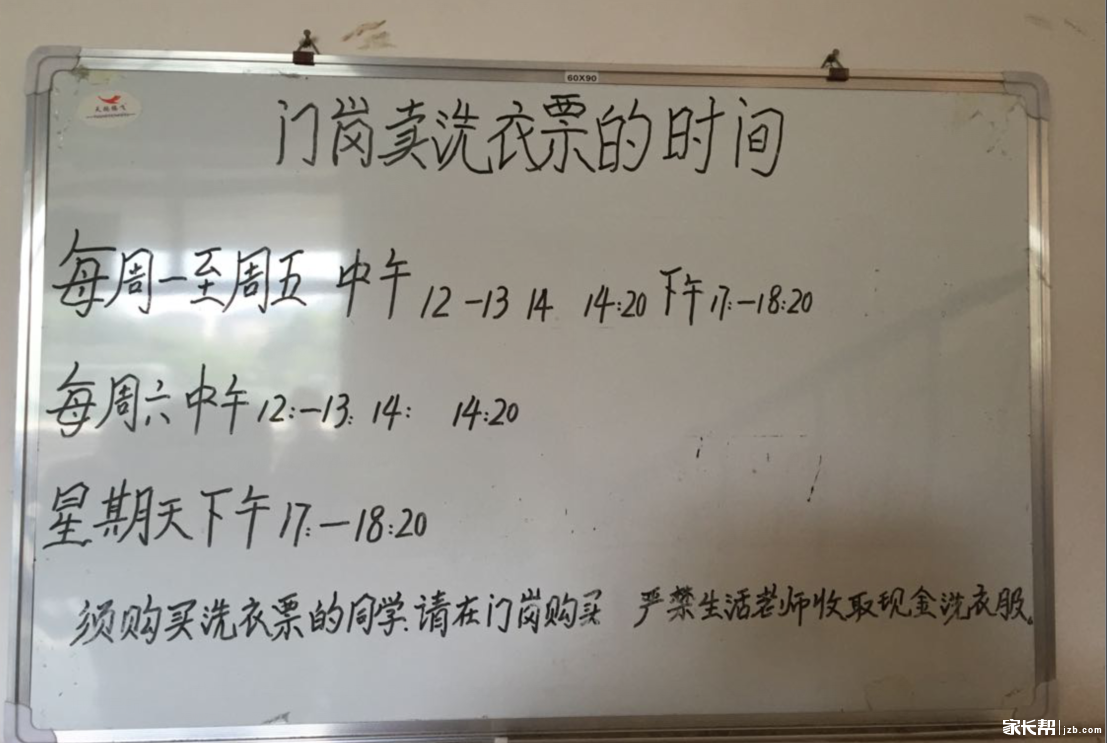 60X90
门岗卖洗衣票的时间
每周一至周五 中午 12-13 14 14:20 下午 17:-18:20
每周六中午12:-13: 14: 14:20
星期天下午17:-18:20
须购买洗衣票的同学.请在门岗购买 严禁生活老师收取现金洗衣服。
家长帮 jzb.com